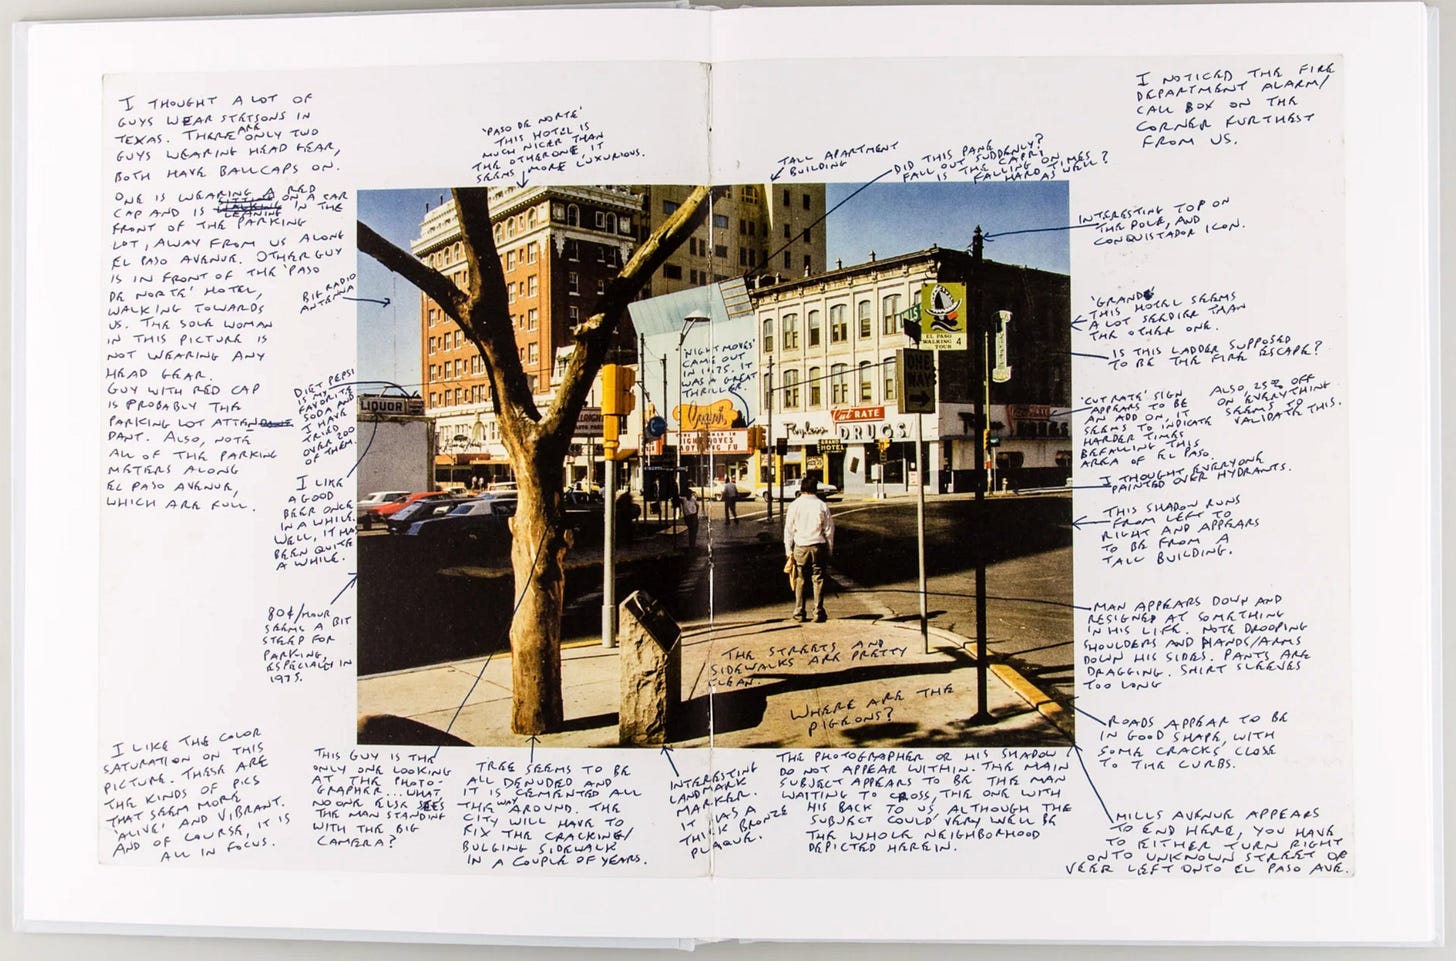 I THOUGHT A LOT OF
GUYS WEAR STETSONS IN
TEXAS. THERE ARE ONLY TWO
GUYS WEARING HEAD GEAR,
BOTH HAVE BALLCAPS ON.
ONE IS WEARING A RED
CAP AND IS SITTING ON A CAR
LEANING IN THE
FRONT OF THE PARKING
LOT, AWAY FROM US ALONG
EL PASO AVENUE. OTHER GUY
IS IN FRONT OF THE 'PASO
DE NORTE' HOTEL,
WALKING TOWARDS
US. THE SOLE WOMAN
IN THIS PICTURE IS
NOT WEARING ANY
HEAD GEAR.
GUY WITH RED CAP
IS PROBABLY THE
PARKING LOT ATTEN
DANT. ALSO, NOTE
ALL OF THE PARKING
METERS ALONG
EL PASO AVENUE,
WHICH ARE FULL.
BIG RADIO
ANTENNA
DIET PEPSI
IS MY
FAVORITE
SODA AND
I HAVE
TRIED
OVER 200
OF THEM.
I LIKE
A GOOD
BEER ONCE
IN A WHILE.
WELL, IT HAS
BEEN QUITE
A WHILE.
80¢/HOUR
SEEMS A BIT
STEEP FOR
PARKING,
ESPECIALLY IN
1975.
I LIKE THE COLOR
SATURATION ON THIS
PICTURE. THESE ARE
THE KINDS OF PICS
THAT SEEM MORE
'ALIVE' AND VIBRANT.
AND OF COURSE, IT IS
ALL IN FOCUS.
'PASO DE NORTE'
THIS HOTEL IS
MUCH NICER THAN
THE OTHER ONE, IT
SEEMS MORE LUXURIOUS.
TALL APARTMENT
BUILDING
DID THIS PANE
FALL OUT SUDDENLY?
IS THE CAPRI
FALLING ON
HARD TIMES
AS WELL?
I NOTICED THE FIRE
DEPARTMENT ALARM/
CALL BOX ON THE
CORNER FURTHEST
FROM US.
INTERESTING TOP ON
THE POLE, AND
CONQUISTADOR ICON.
'GRAND'
THIS HOTEL SEEMS
A LOT SEEDIER THAN
THE OTHER ONE.
IS THIS LADDER SUPPOSED
TO BE THE FIRE ESCAPE?
'CUT RATE' SIGN
APPEARS TO BE
AN ADD ON. IT
SEEMS TO INDICATE
HARDER TIMES
BEFALLING THIS
AREA OF EL PASO.
ALSO, 25% OFF
ON EVERYTHING
SEEMS TO
VALIDATE THIS.
I THOUGHT EVERYONE
PAINTED OVER HYDRANTS.
THIS SHADOW RUNS
FROM LEFT TO
RIGHT AND APPEARS
TO BE FROM A
TALL BUILDING.
MAN APPEARS DOWN AND
RESIGNED AT SOMETHING
IN HIS LIFE. NOTE DROOPING
SHOULDERS AND HANDS/ARMS
DOWN HIS SIDES. PANTS ARE
DRAGGING. SHIRT SLEEVES
TOO LONG
ROADS APPEAR TO BE
IN GOOD SHAPE, WITH
SOME CRACKS CLOSE
TO THE CURBS.
MILLS AVENUE APPEARS
TO END HERE, YOU HAVE
TO EITHER TURN RIGHT
ONTO UNKNOWN STREET OR
VEER LEFT ONTO EL PASO AVE.
'NIGHT MOVES'
CAME OUT
IN 1975. IT
WAS A GREAT
THRILLER.
LIQUOR
Capri
NIGHT MOVES
KUNG FU
Cut RATE
Payless
DRUGS
GRAND
HOTEL
EL PASO
WALKING
TOUR 4
ONE
WAY
THE STREETS AND
SIDEWALKS ARE PRETTY
CLEAN.
WHERE ARE THE
PIGEONS?
THIS GUY IS THE
ONLY ONE LOOKING
AT THE PHOTO-
GRAPHER... WHAT,
NO ONE ELSE SEES
THE MAN STANDING
WITH THE BIG
CAMERA?
TREE SEEMS TO BE
ALL DENUDED AND
IT IS CEMENTED ALL
THE WAY AROUND. THE
CITY WILL HAVE TO
FIX THE CRACKING/
BULGING SIDEWALK
IN A COUPLE OF YEARS.
INTERESTING
LANDMARK
MARKER.
IT HAS A
THICK BRONZE
PLAQUE.
THE PHOTOGRAPHER OR HIS SHADOW
DO NOT APPEAR WITHIN. THE MAIN
SUBJECT APPEARS TO BE THE MAN
WAITING TO CROSS, THE ONE WITH
HIS BACK TO US, ALTHOUGH THE
SUBJECT COULD VERY WELL BE
THE WHOLE NEIGHBORHOOD
DEPICTED HEREIN.